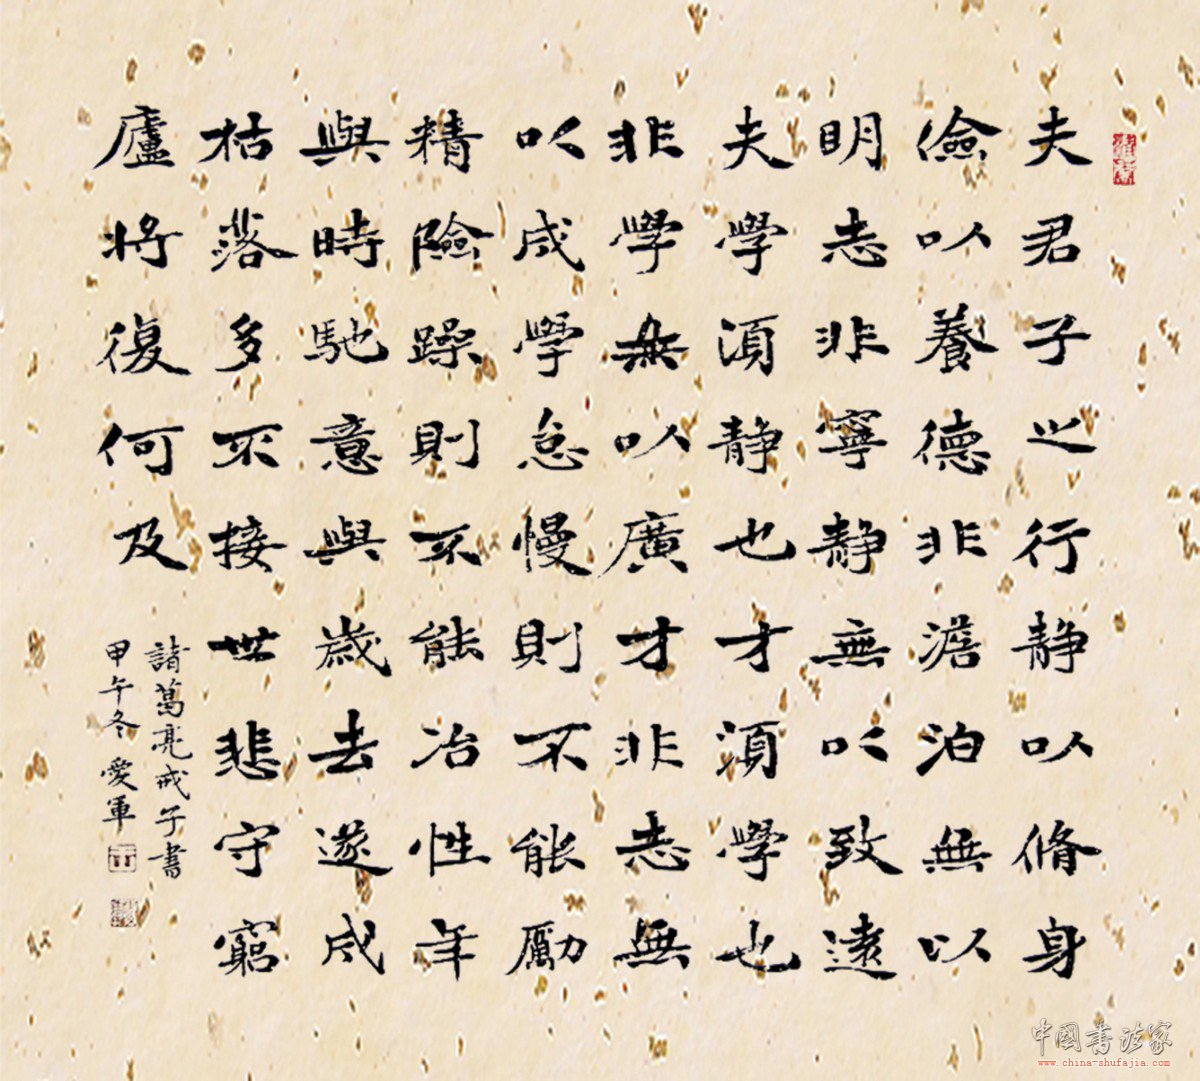 夫君子之行静以脩身
儉以養德非澹泊無以
明志非寧靜無以致遠
夫學須静也才須學也
非學無以廣才非志無
以成學怠慢則不能勵
精險躁則不能冶性年
與時馳意與歲去遂成
枯落多不接世悲守窮
廬將復何及
諸葛亮戒子書
甲午冬愛軍
中国書法家
www.china-shufajia.com